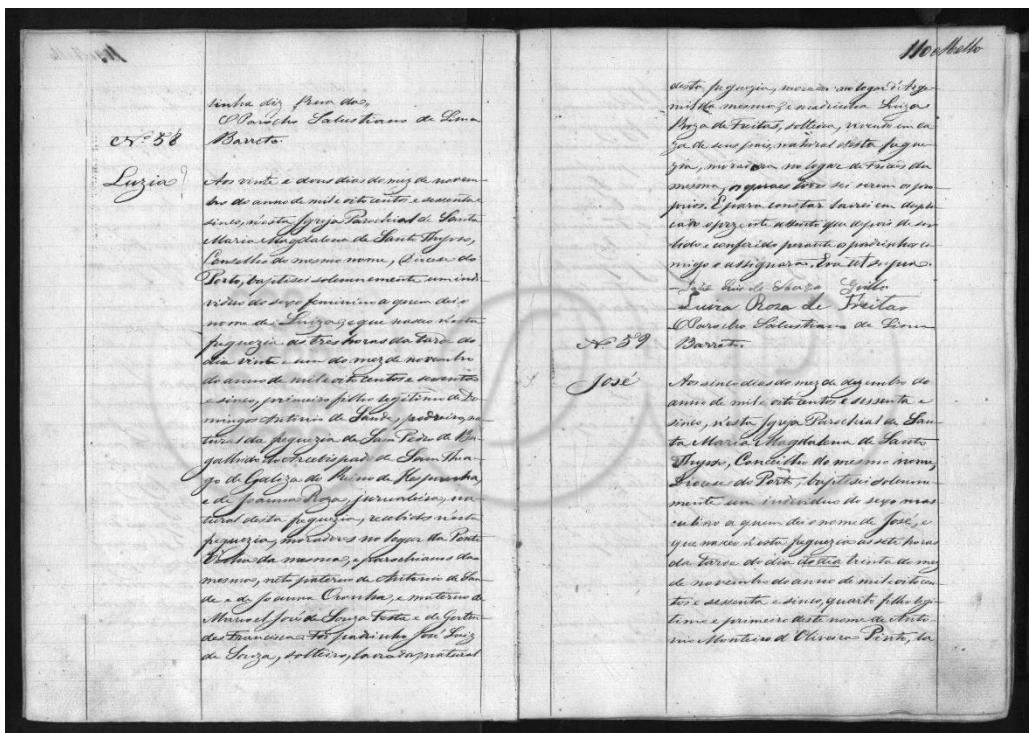 linha diz freu do,
O Parocho Salustiano de Lima
Barreto.
Nº 58
Luzia
Aos vinte e dous dias do mez de novem-
bro do anno de mil e oito centos e sessenta e
sinco, n'esta Igreja Parochial de Santa
Maria Magdalena de Santo Thyrso,
Conselho do mesmo nome, Diocese do
Porto, baptisei solemnemente um indi-
viduo do sexo feminino a quem dei o
nome de Luiza, e que nasceu n'esta
freguezia as tres horas da tarde do
dia vinte e um do mez de novembro
do anno de mil e oito centos e sessenta
e sinco, primeiro filho legitimo de Do-
mingos Antonio de Sande, pedreiro, na-
tural da freguezia de Sam Pedro de
do Arcebispado de Sam Thia-
go de Galiza do Reino de Hespanha,
e de Joanna Roza, jornaleira, na-
tural desta freguezia, recebidos n'esta
freguezia, moradores no logar da Ponte
Velha da mesma, e parochianos da
mesma, neto paterno de Antonio de San-
de e de Joanna e materno de
Manoel José de Souza e de Gertru-
des Francisca. Foi padrinho José Luiz
de Souza, solteiro, lavrador, natural
110 Mello
desta freguezia, morador no logar d'Arge-
mil da mesma, e madrinha Luiza
Roza de Freitas, solteira, vivendo em ca-
za de seus pais, natural d'esta fregue-
zia, moradora no logar de Friães da
mesma, os quaes todos sei serem os pro-
prios. E para constar lavrei em dupli-
cado o prezente assento que depois de ser
lido e conferido perante os padrinhos co-
migo o assignaram. Era ut supra.
José Luiz de Souza
Luiza Rosa de Freitas
O Parocho Salustiano de Lima
Barreto.
Nº 59
José
Aos sinco dias do mez de dezembro do
anno de mil e oito centos e sessenta e
sinco, n'esta Igreja Parochial de San-
ta Maria Magdalena de Santo
Thyrso, Concelho do mesmo nome,
Diocese do Porto, baptisei solemne-
mente um individuo do sexo mas
culino a quem dei o nome de José, e
que nasceu n'esta freguezia as sete horas
da tarde do dia do dia trinta do mez
de novembro do anno de mil e oito cen-
tos e sessenta e sinco, quarto filho legi-
timo e primeiro deste nome de Anto-
nio Monteiro d'Oliveira Pinto, la